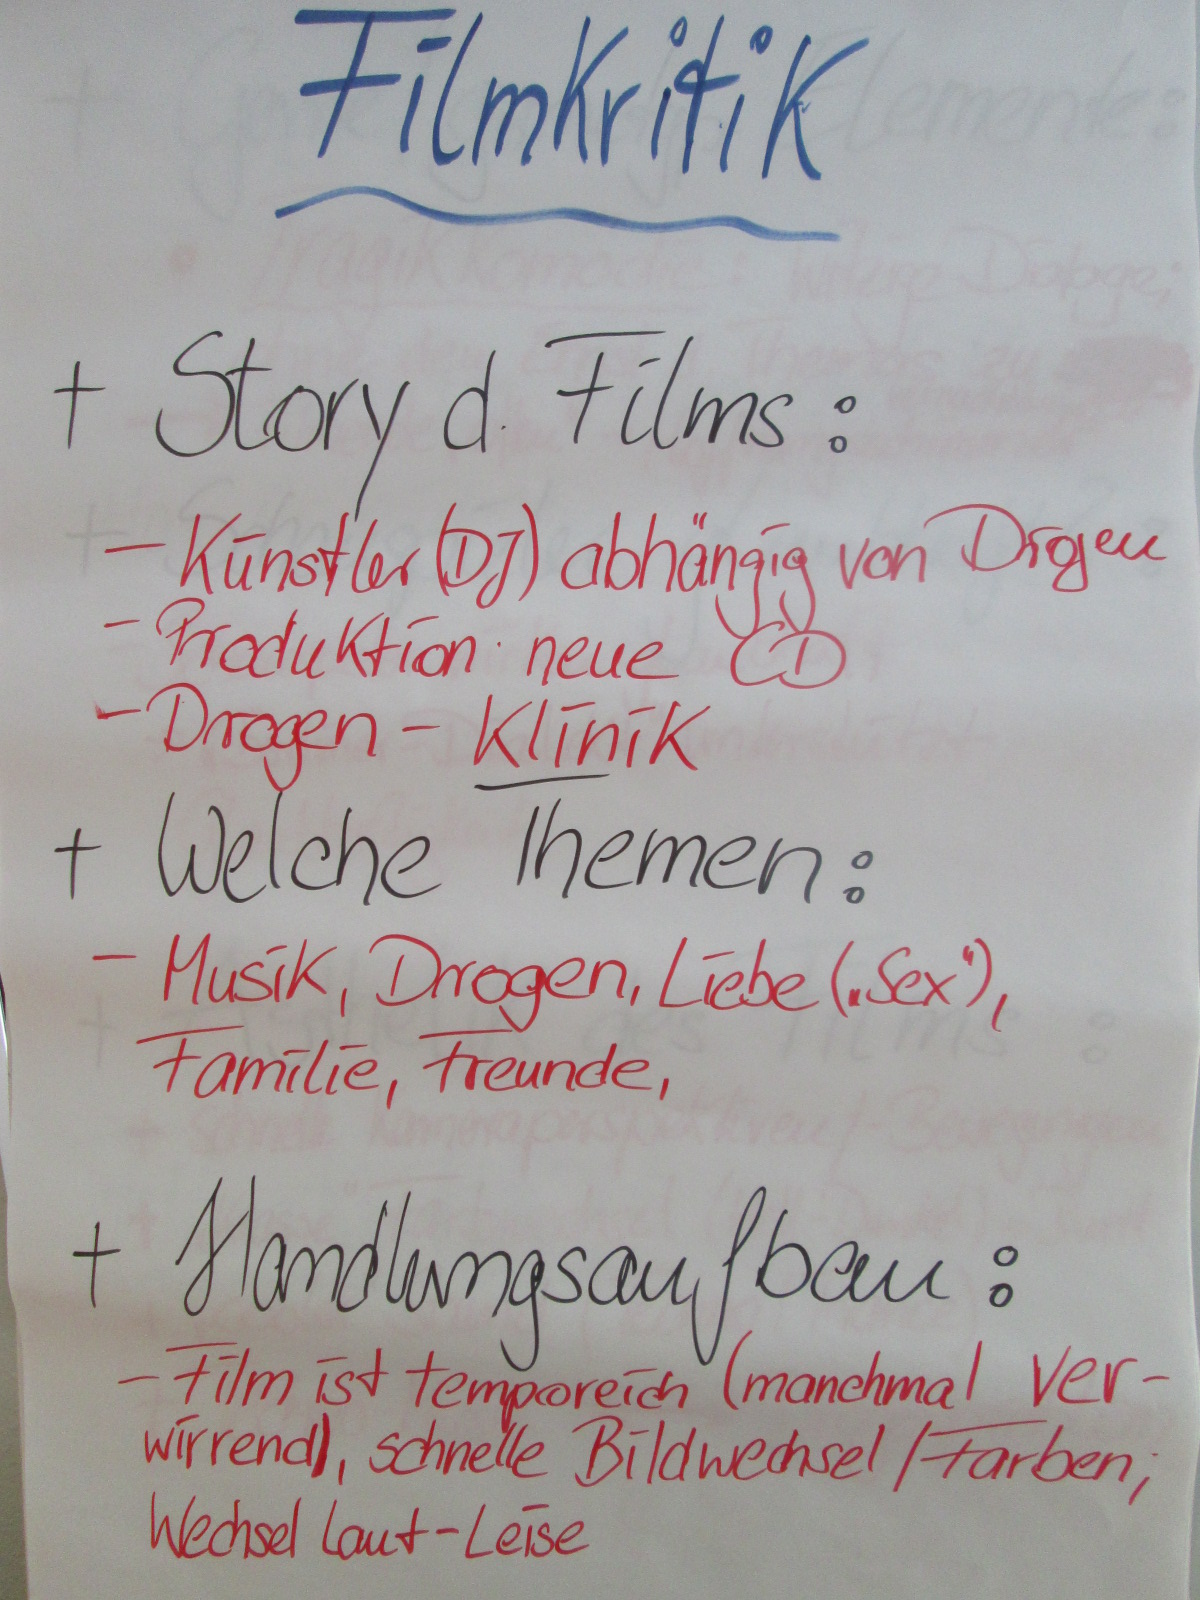 Filmkritik
+ Story d. Films:
- Künstler (DJ) abhängig von Drogen
- Produktion neue CD
- Drogen - Klinik
+ Welche Themen:
- Musik, Drogen, Liebe („Sex"),
Familie, Freunde,
+ Handlungsaufbau:
- Film ist temporeich (manchmal ver-
wirrend), schnelle Bildwechsel / Farben;
Wechsel Laut-Leise